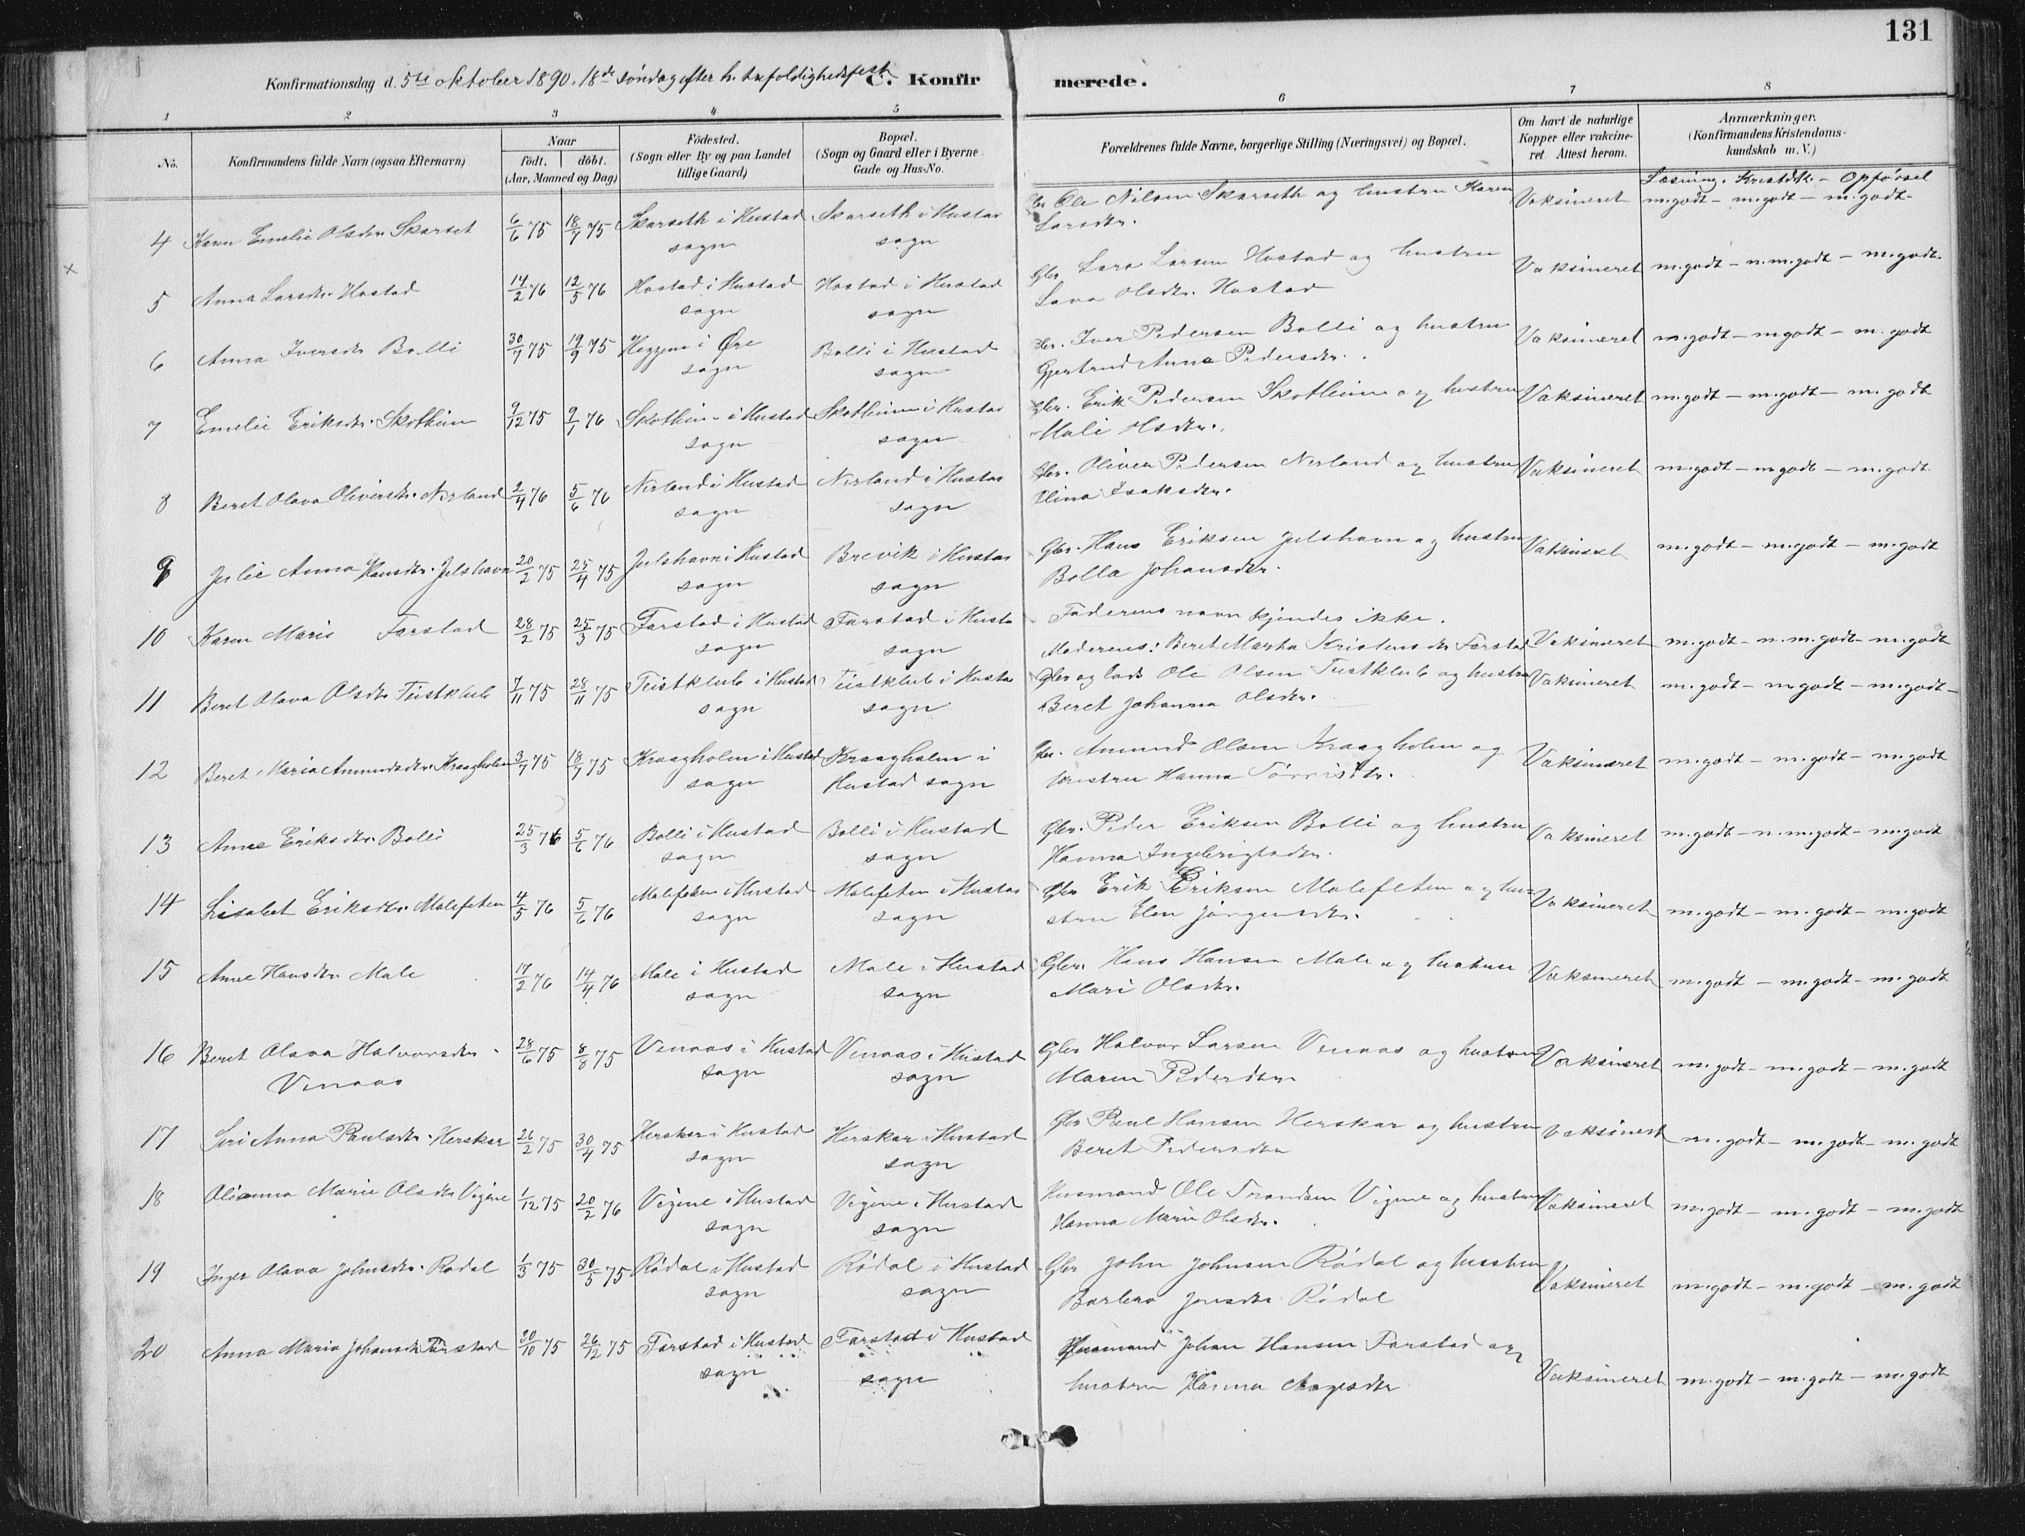 131
Konfirmationsdag d. 5te oktober 1890. 18de søndag efter h. trefoldighedsfest C. Konfirmerede.
1 2 3 4 5 6 7 8
No. Konfirmandens fulde Navn (ogsaa Efternavn) Naar født. døbt. (Aar, Maaned og Dag) Fødested. (Sogn eller By og paa Landet tillige Gaard) Bopæl. (Sogn og Gaard eller i Byerne Gade og Hus-No. Forældrenes fulde Navne, borgerlige Stilling (Næringsvei) og Bopæl. Om havt de naturlige Kopper eller vakcineret. Attest herom. Anmærkninger. (Konfirmandens Kristendomskundskab m. V.)
Læsning. Kristdk. - Opførsel
4 Karen Emelie Olsdtr. Skarset 6/6 75 18/7 75 Skarseth i Hustad sogn Skarseth i Hustad sogn Ole Nilsen Skarseth og hustru Karen Larsdtr. Vaksineret m.godt - m.godt - m.godt-
5 Anna Larsdtr. Hostad 14/2 76 12/5 76 Hostad i Hustad sogn Hostad i Hustad sogn Gbr. Lars Larsen Hostad og hustru Lava Olsdtr. Hostad Vaksineret m.godt - n.m.godt - m.godt.
6 Anna Iversdtr. Bolli 30/7 75 19/9 75 Heggem i Øre sogn Bolli i Hustad sogn Gbr. Iver Pedersen Bolli og hustru Gjertrud Anna Pedersdtr. Vaksineret m.godt - m.godt - m.godt
7 Emelie Eriksdtr. Skotheim 9/12 75 9/1 76 Skotheim i Hustad sogn Skotheim i Hustad sogn Gbr. Erik Pedersen Skotheim og hustru Mali Olsdtr. Vaksineret m.godt - m.godt - m.godt
8 Beret Olava Oliversdtr. Nerland 2/4 76 5/6 76 Nerland i Hustad sogn Nerland i Hustad sogn Gbr. Oliver Pedersen Nerland og hustru Olina Isaksdtr. Vaksineret m.godt - m.godt - m.godt
9 Julie Anna Hansdtr. Julshavn 20/2 75 25/4 75 Julshavn i Hustad sogn Brevik i Hustad sogn Gbr. Hans Eriksen Julshavn og hustru Bolla Johansdtr. Vaksineret m.godt - m.godt - m.godt
10 Karen Marie Farstad 28/2 75 25/3 75 Farstad i Hustad sogn Farstad i Husta sogn Faderens navn kjendes ikke. Moderens: Beret Martha Kristensdtr Farstad Vaksineret m.godt - n.m.godt - m.godt
11 Beret Olava Olsdtr. Teistklub 7/11 75 28/11 75 Teistklub i Hustad sogn Teistklub i Hustad sogn Gbr og lods Ole Olsen Teistklub og hustru Beret Johanna Olsdtr. Vaksineret m.godt - m.godt - m.godt-
12 Beret Maria Amundsdtr. Kraagholm 3/7 75 18/7 75 Kraagholm i Hustad sogn Kraagholm i Hustad sogn Gbr. Amund Olsen Kraagholm og hustru Hanna Vaksineret m.godt - m.godt - m.godt
13 Anne Eriksdtr. Bolli 25/3 76 5/6 76 Bolli i Hustad sogn Bolli i Hustad sogn Gbr. Peder Eriksen Bolli og hustru Hanna Ingebrigtsdtr. Vaksineret m.godt - n.m.godt - m.godt
14 Lisabet Eriksdtr. Malefeten 4/5 76 5/6 76 Malefeten i Hustad sogn Malefeten i Hustad sogn Gbr Erik Eriksen Malefeten og hustru Elen Jørgensdtr. Vaksineret m.godt - m.godt - m.godt
15 Anne Hansdtr. Male 17/2 76 14/4 76 Male i Hustad sogn Male i Hustad sogn Gbr. Hans Hansen Male og hustru Mari Olsdtr. Vaksineret m.godt - m.godt - m.godt
16 Beret Olava Halvorsdtr. Venaas 28/6 75 8/8 75 Venaas i Hustad sogn Venaas i Hustad sogn Gbr Halvor Larsen Venaas og hustru Maren Pedersdtr Vaksineret m.godt - m.godt - m.godt
17 Siri Anna Paulsdtr. Herskar 26/2 75 30/4 75 Herskar i Hustad sogn Herskar i Hustad sogn Gbr Paul Hansen Herskar og hustru Beret Pedersdtr Vaksineret m.godt - m.godt - m.godt
18 Olianna Marie Olsdtr Vigene 1/12 75 20/2 76 Vigene i Hustad sogn Vigene i Hustad sogn Husmand Ole Trondsen Vigene og hustru Hanna Marie Olsdtr. Vaksineret m.godt - m.godt - m.godt
19 Inger Olava Johnsdtr. Rødal 1/3 75 30/5 75 Rødal i Hustad sogn Rødal i Hustad sogn Gbr John Johnsen Rødal og hustru Barbro Jonsdtr Rødal Vaksineret m.godt - m.godt - m.godt
20 Anna Maria Johansdtr Farstad 20/10 75 26/12 75 Farstad i Hustad sogn Farstad i Hustad sogn Husmand Johan Hansen Farstad og hustru Hanna Aagesdtr Vaksineret m.godt - m.godt - m.godt